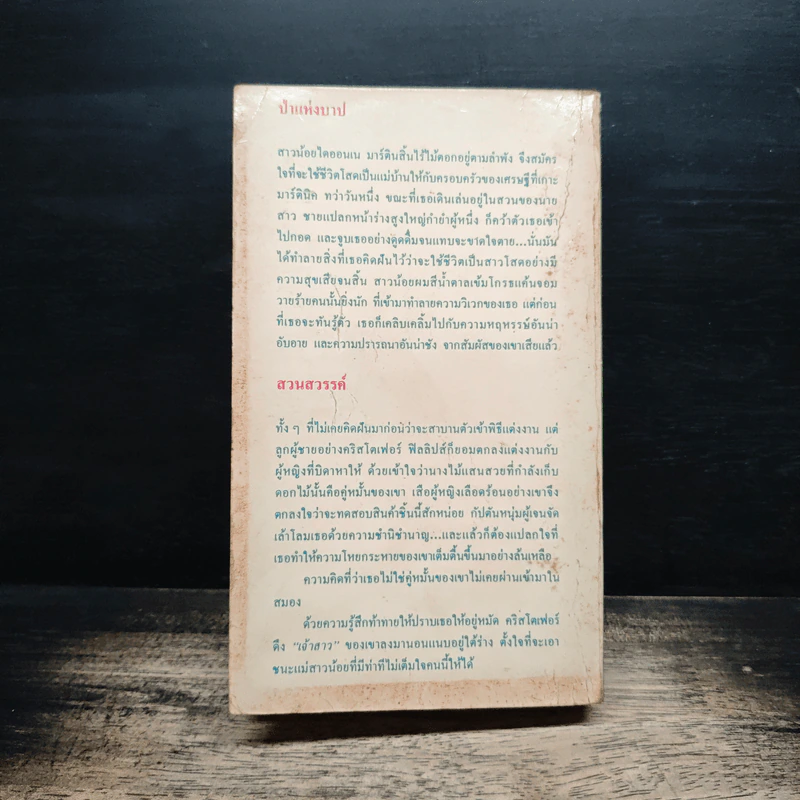 ป่าแห่งบาป
สาวน้อยไดออนเน มาร์ตินสิ้นไร้ไม้ตอกอยู่ตามลำพัง จึงสมัคร
ใจที่จะใช้ชีวิตโสดเป็นแม่บ้านให้กับครอบครัวของเศรษฐีที่เกาะ
มาร์ตินิค ทว่าวันหนึ่ง ขณะที่เธอเดินเล่นอยู่ในสวนของนาย
สาว ชายแปลกหน้าร่างสูงใหญ่กำยำผู้หนึ่ง ก็คว้าตัวเธอเข้า
ไปกอด และจูบเธออย่างดูดดื่มจนแทบจะขาดใจตาย...นั่นมัน
ได้ทำลายสิ่งที่เธอคิดฝันไว้ว่าจะใช้ชีวิตเป็นสาวโสดอย่างมี
ความสุขเสียจนสิ้น สาวน้อยผมสีน้ำตาลเข้มโกรธแค้นจอม
วายร้ายคนนั้นยิ่งนัก ที่เข้ามาทำลายความวิเวกของเธอ แต่ก่อน
ที่เธอจะทันรู้ตัว เธอก็เคลิบเคลิ้มไปกับความหฤหรรษ์อันน่า
อับอาย และความปรารถนาอันน่าชัง จากสัมผัสของเขาเสียแล้ว
สวนสวรรค์
ทั้ง ๆ ที่ไม่เคยคิดฝันมาก่อนว่าจะสาบานตัวเข้าพิธีแต่งงาน แต่
ลูกผู้ชายอย่างคริสโตเฟอร์ ฟิลลิปส์ก็ยอมตกลงแต่งงานกับ
ผู้หญิงที่บิดาหาให้ ด้วยเข้าใจว่านางไม้แสนสวยที่กำลังเก็บ
ดอกไม้นั้นคือคู่หมั้นของเขา เสือผู้หญิงเลือดร้อนอย่างเขาจึง
ตกลงใจว่าจะทดสอบสินค้าชิ้นนี้สักหน่อย กัปตันหนุ่มผู้เจนจัด
เล้าโลมเธอด้วยความชำนิชำนาญ...และแล้วก็ต้องแปลกใจที่
เธอทำให้ความโหยกระหายของเขาเต็มตื้นขึ้นมาอย่างล้นเหลือ
ความคิดที่ว่าเธอไม่ใช่คู่หมั้นของเขาไม่เคยผ่านเข้ามาใน
สมอง
ด้วยความรู้สึกท้าทายให้ปราบเธอให้อยู่หมัด คริสโตเฟอร์
ดึง "เจ้าสาว" ของเขาลงมานอนแนบอยู่ใต้ร่าง ตั้งใจที่จะเอา
ชนะแม่สาวน้อยที่มีท่าทีไม่เต็มใจคนนี้ให้ได้